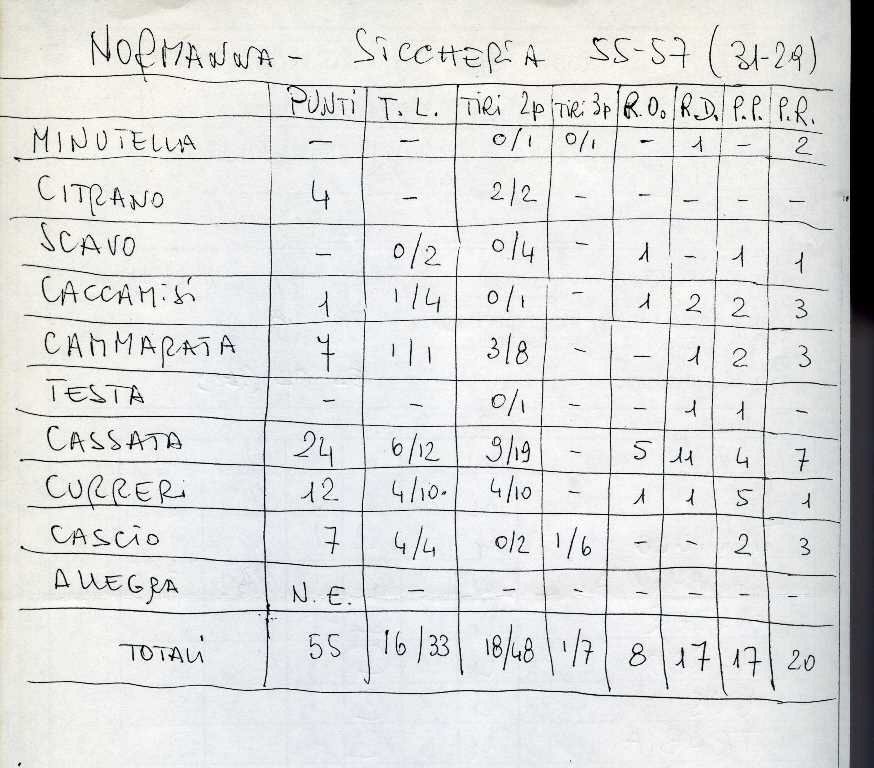 NORMANNA - SICCHERIA 55-57 (31-29)
PUNTI T. L. TIRI 2p TIRI 3p R.O. R.D. P.P. P.R.
MINUTELLA - - 0/1 0/1 - 1 - 2
CITRANO 4 - 2/2 - - - - -
SCAVO - 0/2 0/4 - 1 - 1 1
CACCAMISI 1 1/4 0/1 - 1 2 2 3
CAMMARATA 7 1/1 3/8 - - 1 2 3
TESTA - - 0/1 - - 1 1 -
CASSATA 24 6/12 9/19 - 5 11 4 7
CURRERI 12 4/10. 4/10 - 1 1 5 1
CASCIO 7 4/4 0/2 1/6 - - 2 3
ALLEGRA N. E. - - - - - - -
TOTALI 55 16/33 18/48 1/7 8 17 17 20